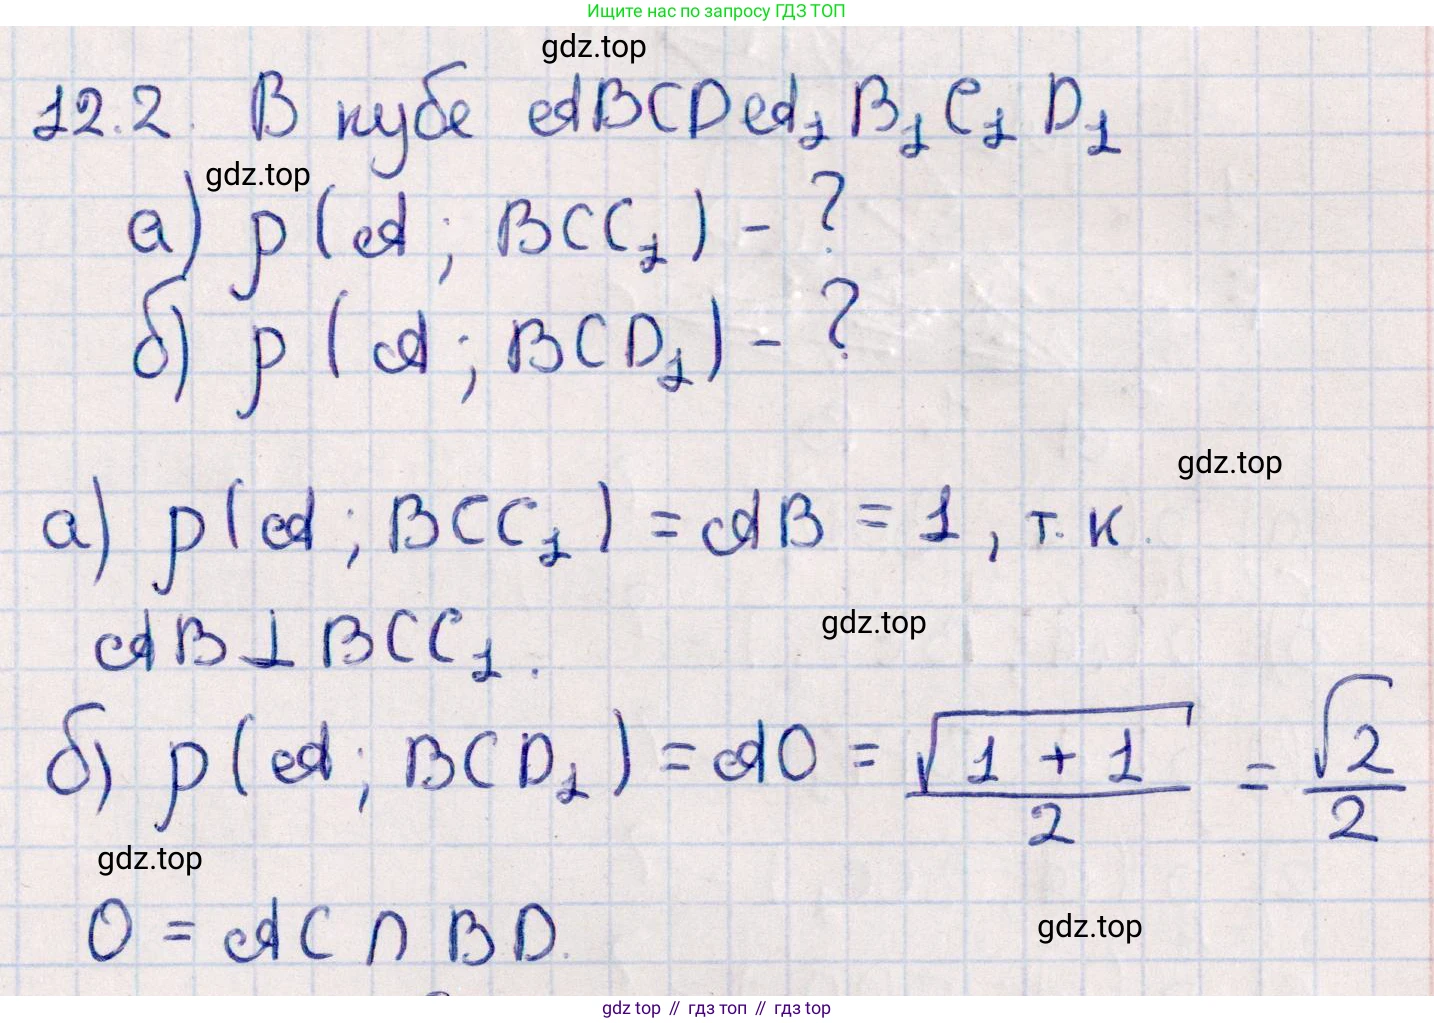 Ищите нас по запросу ГДЗ ТОП
gdz.top
12.2. В кубе ABCDA₁B₁C₁D₁
gdz.top
а) ρ(A; BCC₁) - ?
б) ρ(A; BCD₁) - ?
gdz.top
а) ρ(A; BCC₁) = AB = 1, т.к.
AB ⊥ BCC₁.
gdz.top
б) ρ(A; BCD₁) = AO = √(1 + 1)/2 = √2/2
gdz.top
O = AC ∩ BD.
gdz.top
gdz top // гдз топ // гдз top